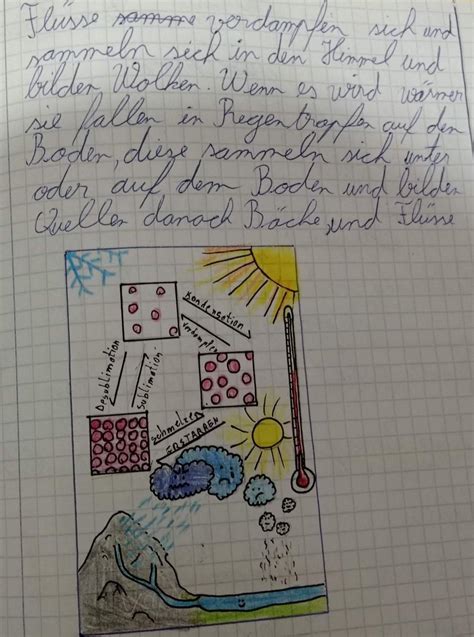 Flüsse samme verdampfen sich und
sammeln sech in den Himmel und
bilden Wolken. Wenn es wird wärmer
sie fallen in Regentropfen auf den
Boden, diese sammeln sich unter
oder auf dem Boden und bilden
Quellen danach Bäche, und Flüsse
Kondensation
verdampfen
Desublimation
Sublimation
schmelzen
ERSTARREN